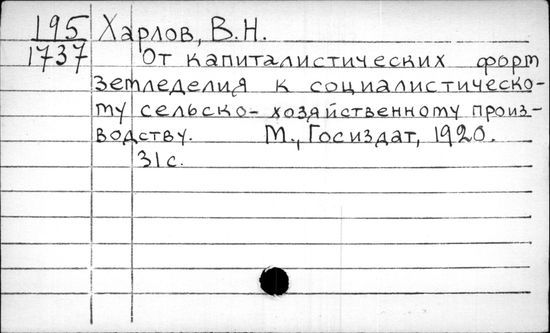 195 Харлов, В.Н.
1737 От капиталистических форм
земледелия к социалистическо-
му сельско-хозяйственному произ-
водству. М., Госиздат, 1920.
31с.